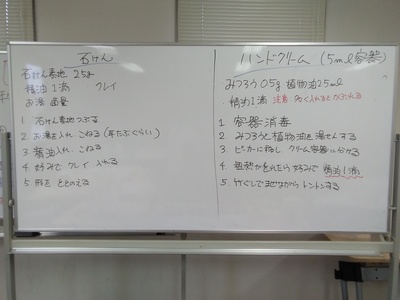 石けん
石けん素地 25g
精油 1滴 クレイ
お湯 適量
1 石けん素地つぶる
2 お湯を入れ こねる(耳たぶぐらい)
3 精油入れ、こねる
4 好みで クレイ 入れる
5 形を ととのえる
ハンドクリーム (5ml容器)
みつろう 0.5g 植物油 25ml
精油1滴 注意 多く入れるとかぶれる
1 容器消毒
2 みつろうと植物油を湯せんする
3 ビーカーに移し クリーム容器に分ける
4 粗熱がとれたら好みで 精油1滴
5 竹ぐしでまぜながら トントンする